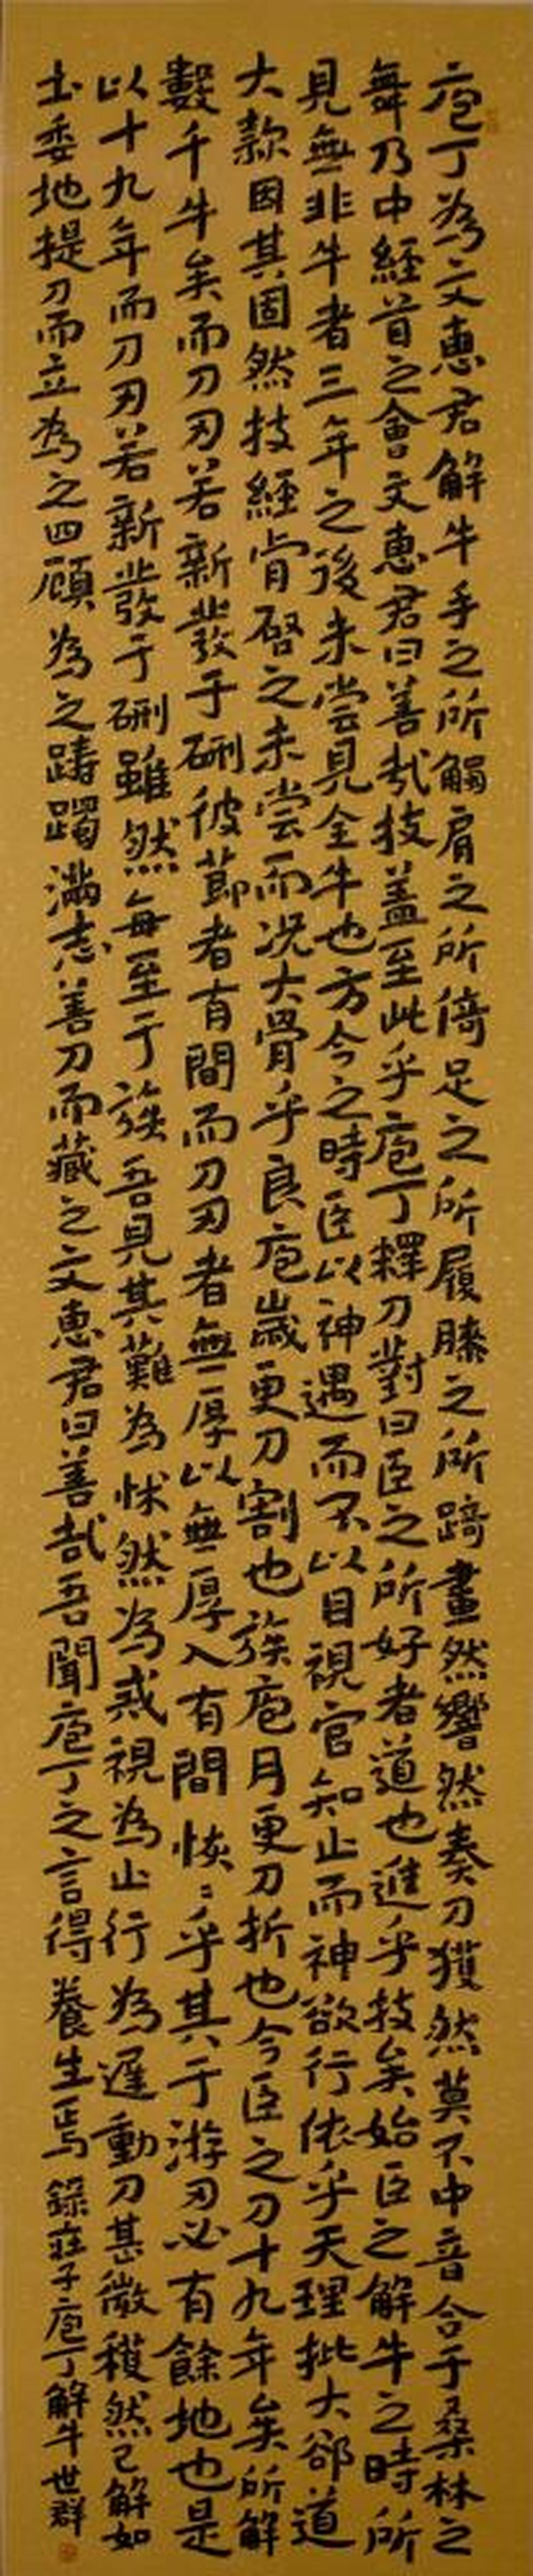 庖丁為文惠君解牛手之所觸肩之所倚足之所履膝之所踦畫然響然奏刀獲然莫不中音合于桑林之
舞乃中經首之會文惠君曰善哉技蓋至此乎庖丁釋刀對曰臣之所好者道也進乎技矣始臣之解牛之時所
見無非牛者三年之後未嘗見全牛也方今之時臣以神遇而不以目視官知止而神欲行依乎天理批大郤道
大款因其固然技經肯綮之未嘗而況大骨乎良庖歲更刀割也族庖月更刀折也今臣之刀十九年矣所解
數千牛矣而刀刃若新發于硎彼節者有間而刀刃者無厚以無厚入有間恢〻乎其于游刃必有餘地也是
以十九年而刀刃若新發于硎雖然每至于族吾見其難為怵然為戒視為止行為遲動刀甚微䅵然已解如
土委地提刀而立為之四顧為之躊躇滿志善刀而藏之文惠君曰善哉吾聞庖丁之言得養生焉錄莊子庖丁解牛世群